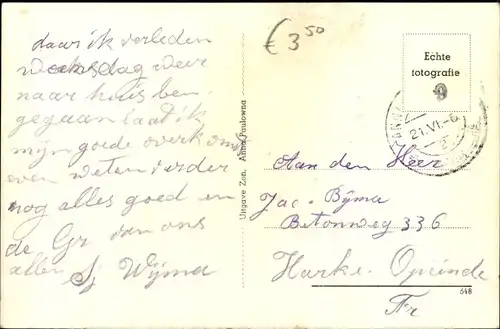 daar ik verleden
woensdag weer
naar huis ben
gegaan laat ik
mijn goede overkomst
even weten verder
nog alles goed en
de Gr van ons
allen Sj Wijma
€ 3,50
Uitgave Zon. Anna Paulowna
Echte
fotografie
21.VI.-6
Aan den Heer
Jac. Bijma
Betonweg 336
Harke. Opeinde
Fr
648